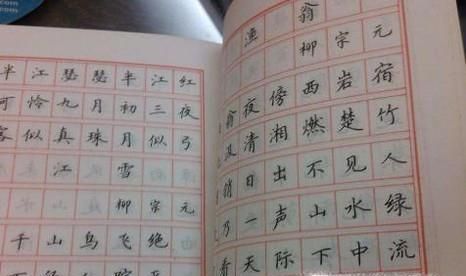 .com
半江瑟瑟半江红
可怜九月初三夜
似真珠月似弓
江雪
柳宗元
千山鸟飞绝
渔翁
柳宗元
翁夜傍西岩宿
汲清湘燃楚竹
销日出不见人
乃一声山水绿
看天际下中流